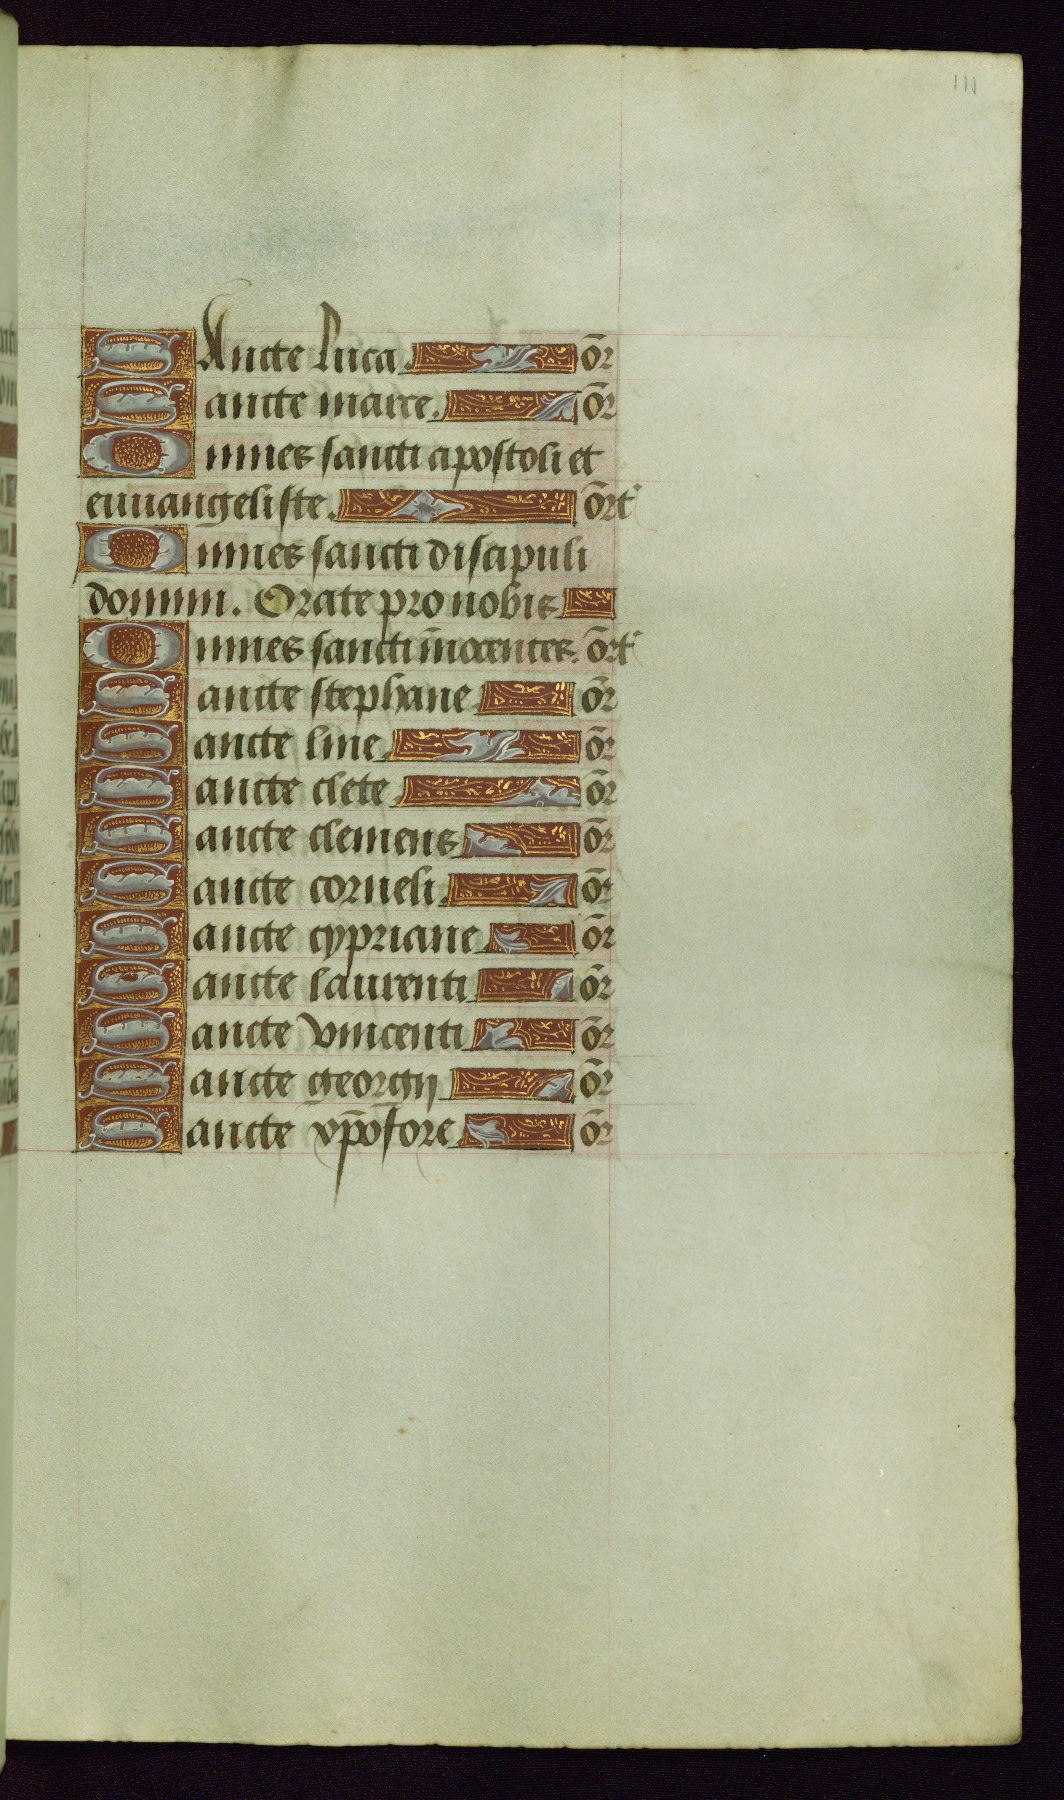 111
SAncte Luca. or̄
Sancte marce. or̄
Omnes sancti apostoli et
euuangeliste. or̄t
Omnes sancti discipuli
domini. Orate pro nobis
Omnes sancti īnocentes. or̄t
Sancte stephane or̄
Sancte line or̄
Sancte clete or̄
Sancte clemens or̄
Sancte corneli or̄
Sancte cypriane or̄
Sancte laurenti or̄
Sancte vincenti or̄
Sancte georgij or̄
Sancte xp̄ofore or̄